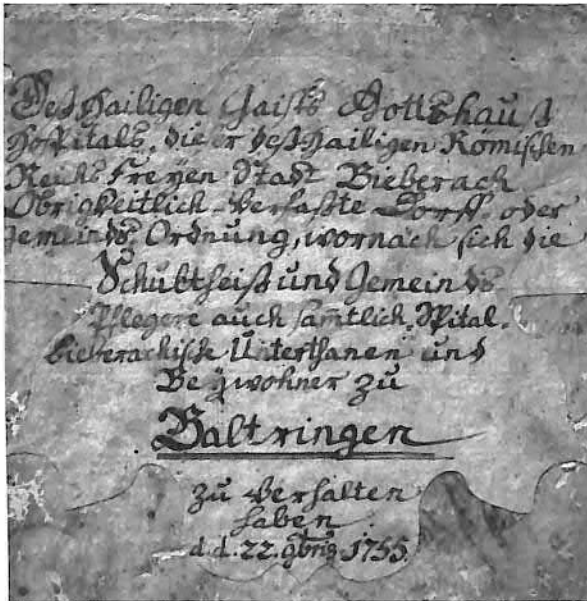 Deß Hailigen Gaists Gottshauß
Hospitals, dieser deß Hailigen Römischen
Reichs Freyen Stadt Bieberach
Obrigkeitlich-Verfaßte Dorff- oder
Gemeinds-Ordnung, wornach sich die
Schultheiß und Gemeinds
Pflegere auch samtlich-Spital-
bieberachische Unterthanen und
Beywohner zu
Baltringen
zu Verhalten
haben
d.d. 22. 9bris 1755